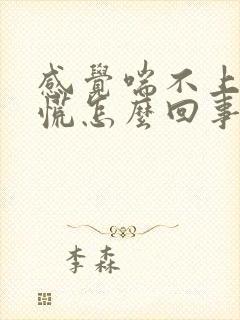 感覺喘不上
慌怎麼回事
李森